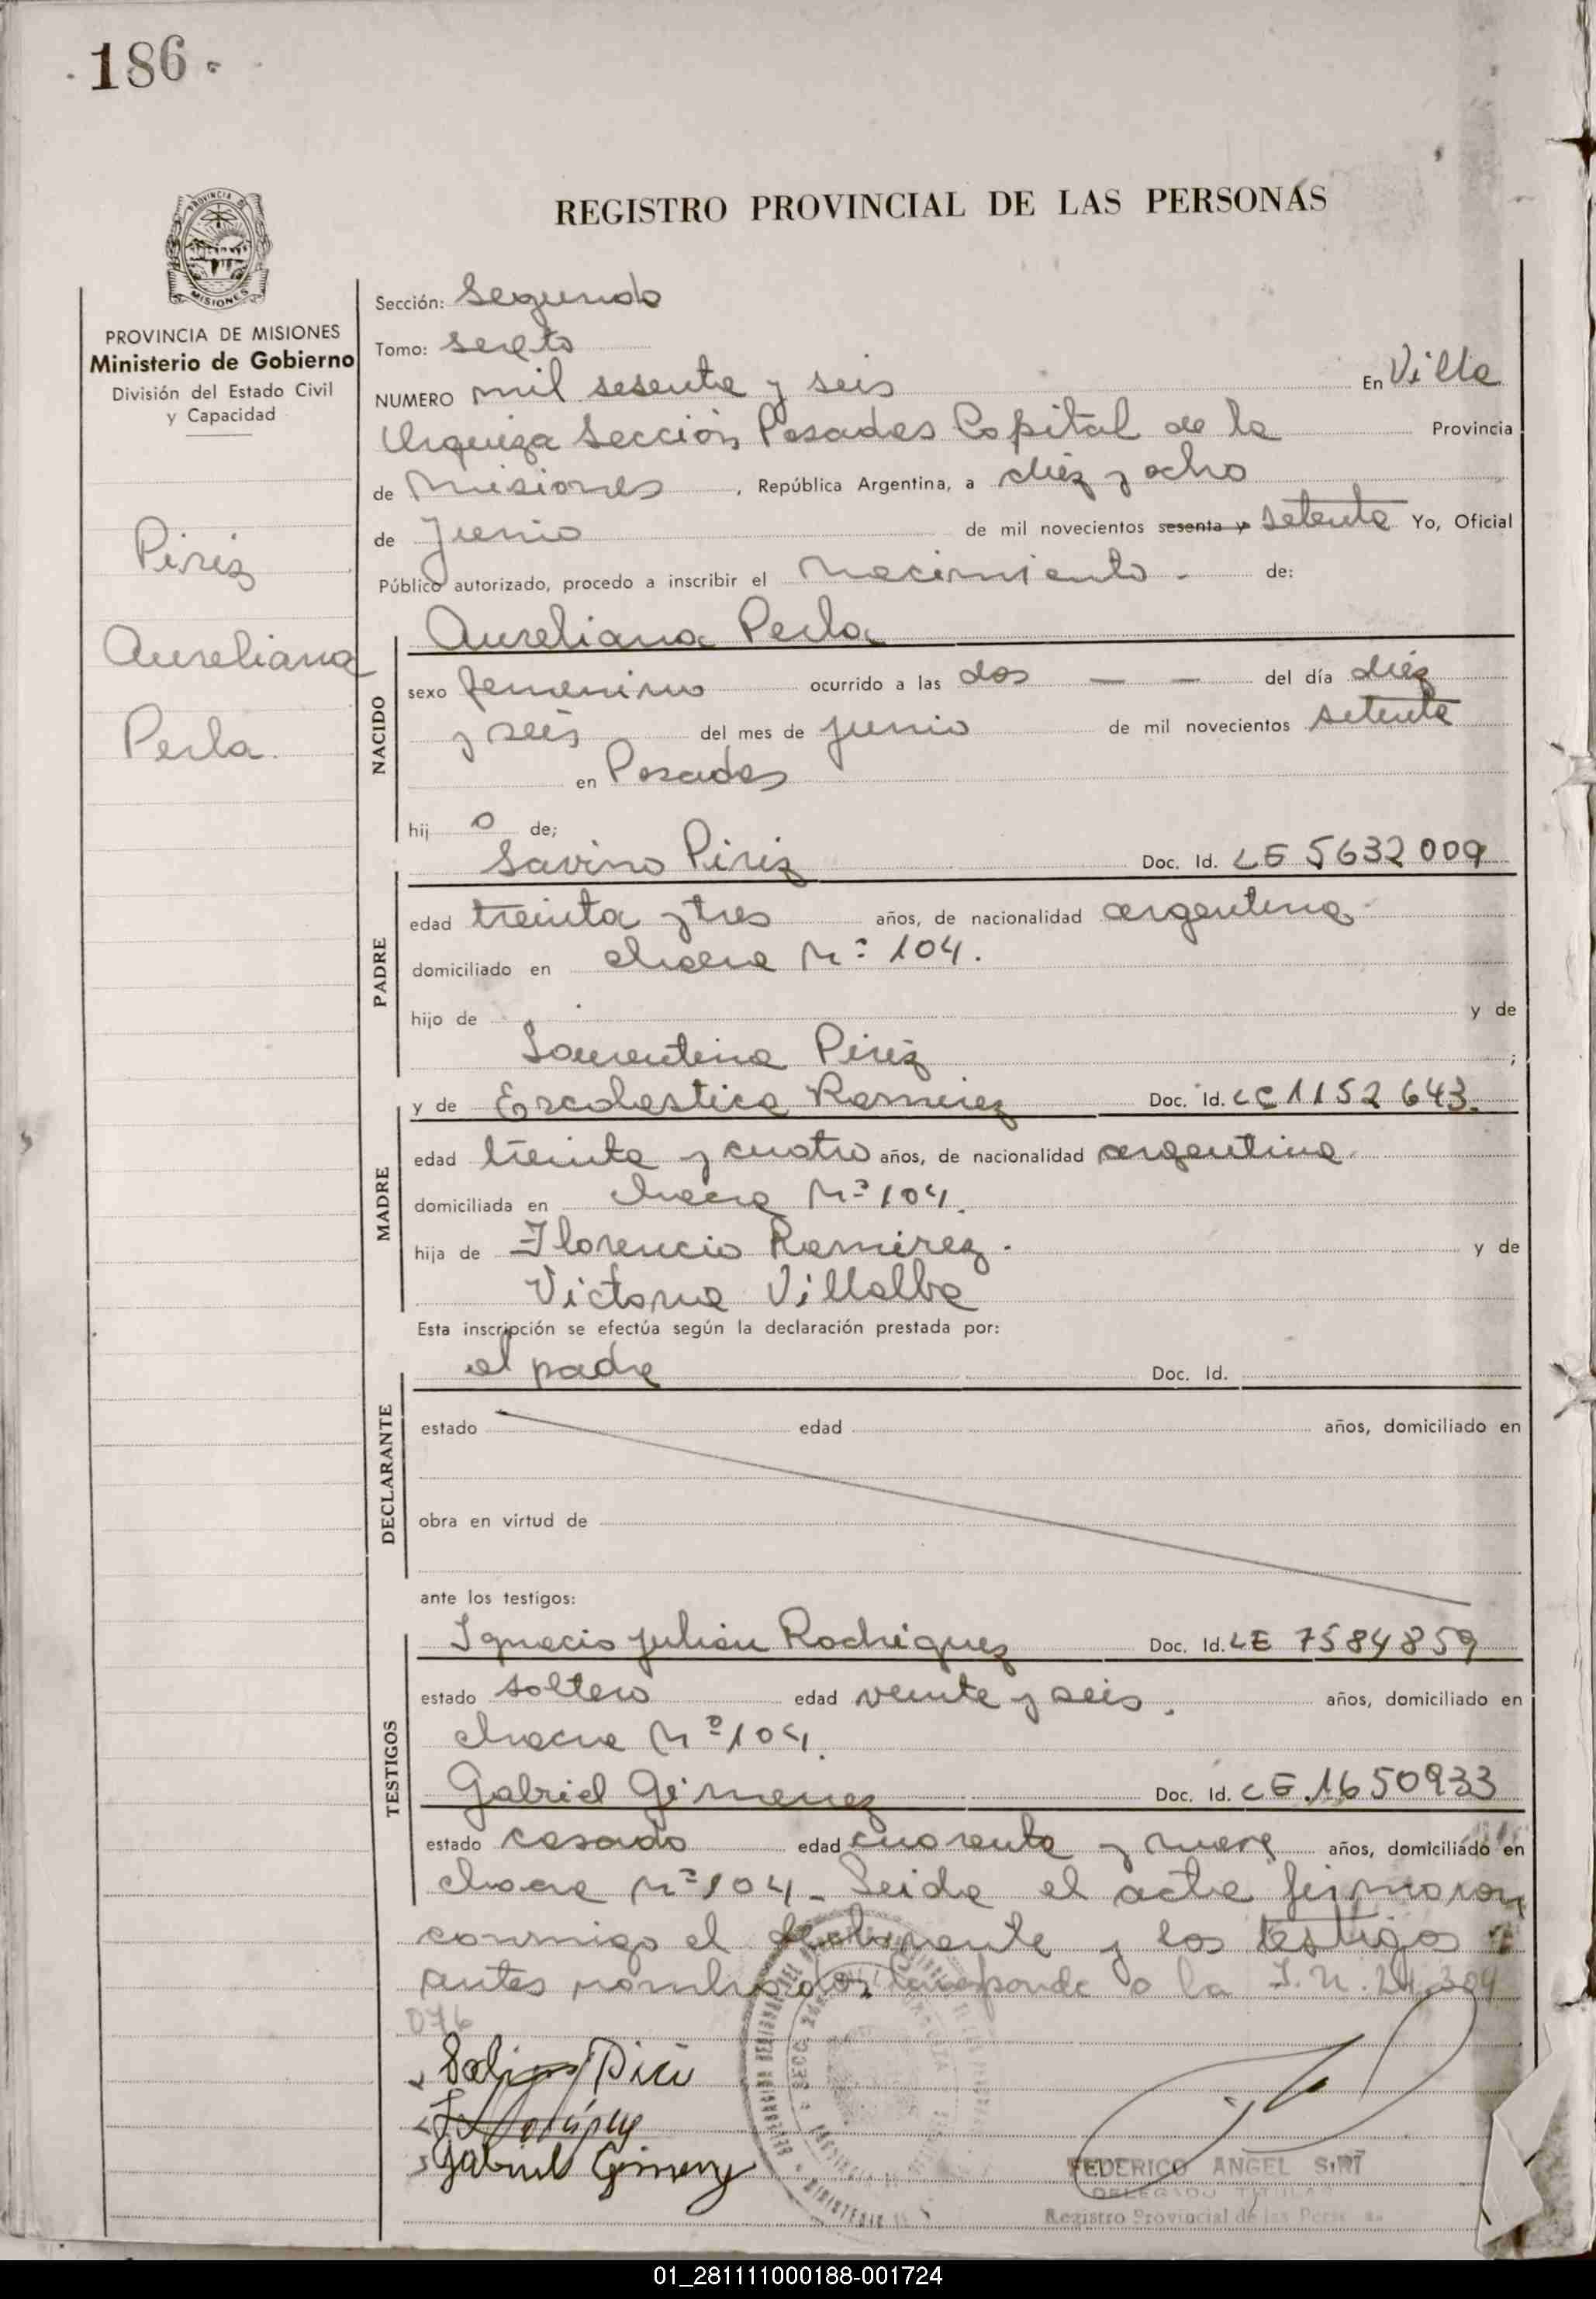 186
REGISTRO PROVINCIAL DE LAS PERSONAS
PROVINCIA DE MISIONES
MISIONES
PROVINCIA DE MISIONES
Ministerio de Gobierno
División del Estado Civil
y Capacidad
Piriz
Aureliana
Perla.
Sección: Segunda
Tomo: sexto
NUMERO mil sesenta y seis En Villa
Urquiza Sección Posadas Capital de la Provincia
de Misiones, República Argentina, a diez y ocho
de Junio de mil novecientos sesenta y setenta Yo, Oficial
Público autorizado, procedo a inscribir el Nacimiento - de:
Aureliana Perla
NACIDO
sexo femenino ocurrido a las dos — — del día diez
y seis del mes de junio de mil novecientos setenta
en Posadas
hij a de;
PADRE
Savino Piriz Doc. Id. LE 5632009
edad treinta y tres años, de nacionalidad argentina
domiciliado en chacra Nº 104.
hijo de y de
Laurentina Piriz ;
MADRE
y de Escolastica Ramirez Doc. Id. LC 1152643.
edad treinta y cuatro años, de nacionalidad argentina.
domiciliada en chacra Nº 104.
hija de Florencio Ramirez. y de
Victoria Villalba
Esta inscripción se efectúa según la declaración prestada por:
DECLARANTE
el padre Doc. Id.
estado edad años, domiciliado en
obra en virtud de
ante los testigos:
TESTIGOS
Ignacio Julián Rodriguez Doc. Id. LE 7584859
estado soltero edad veinte y seis. años, domiciliado en
chacra Nº 104.
Gabriel Gimenez Doc. Id. LE. 1650933
estado casado edad cuarenta y nueve años, domiciliado en
chacra Nº 104 - Leida el acta firmaron
conmigo el declarante y los testigos
antes nombrados. Corresponde a la I.N. 24.304
076
Gabriel Gimenez
FEDERICO ANGEL SIRI
DELEGADO TITULAR
Registro Provincial de las Personas
01_281111000188-001724